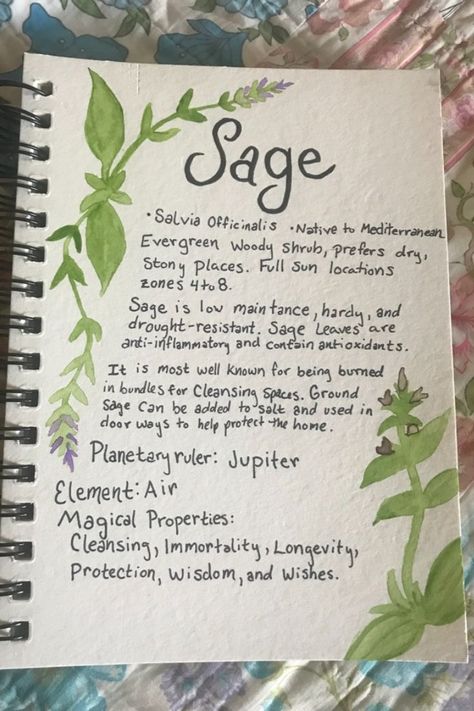 Sage
•Salvia Officinalis •Native to Mediterranean
Evergreen Woody shrub, prefers dry,
Stony Places. Full Sun locations
zones 4 to 8.
Sage is low maintance, hardy, and
drought-resistant. Sage Leaves are
anti-inflammatory and contain antioxidants.
It is most well known for being burned
in bundles for Cleansing Spaces. Ground
Sage Can be added to salt and used in
door ways to help protect the home.
Planetary ruler: Jupiter
Element: Air
Magical Properties:
Cleansing, Immortality, Longevity,
Protection, Wisdom, and Wishes.